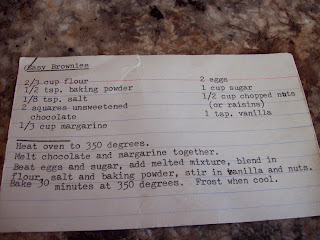 Easy Brownies
2/3 cup flour
1/2 tsp. baking powder
1/8 tsp. salt
2 squares unsweetened
chocolate
1/3 cup margarine
2 eggs
1 cup sugar
1/2 cup chopped nuts
(or raisins)
1 tsp. vanilla
Heat oven to 350 degrees.
Melt chocolate and margarine together.
Beat eggs and sugar, add melted mixture, blend in
flour, salt and baking powder, stir in vanilla and nuts.
Bake 30 minutes at 350 degrees. Frost when cool.